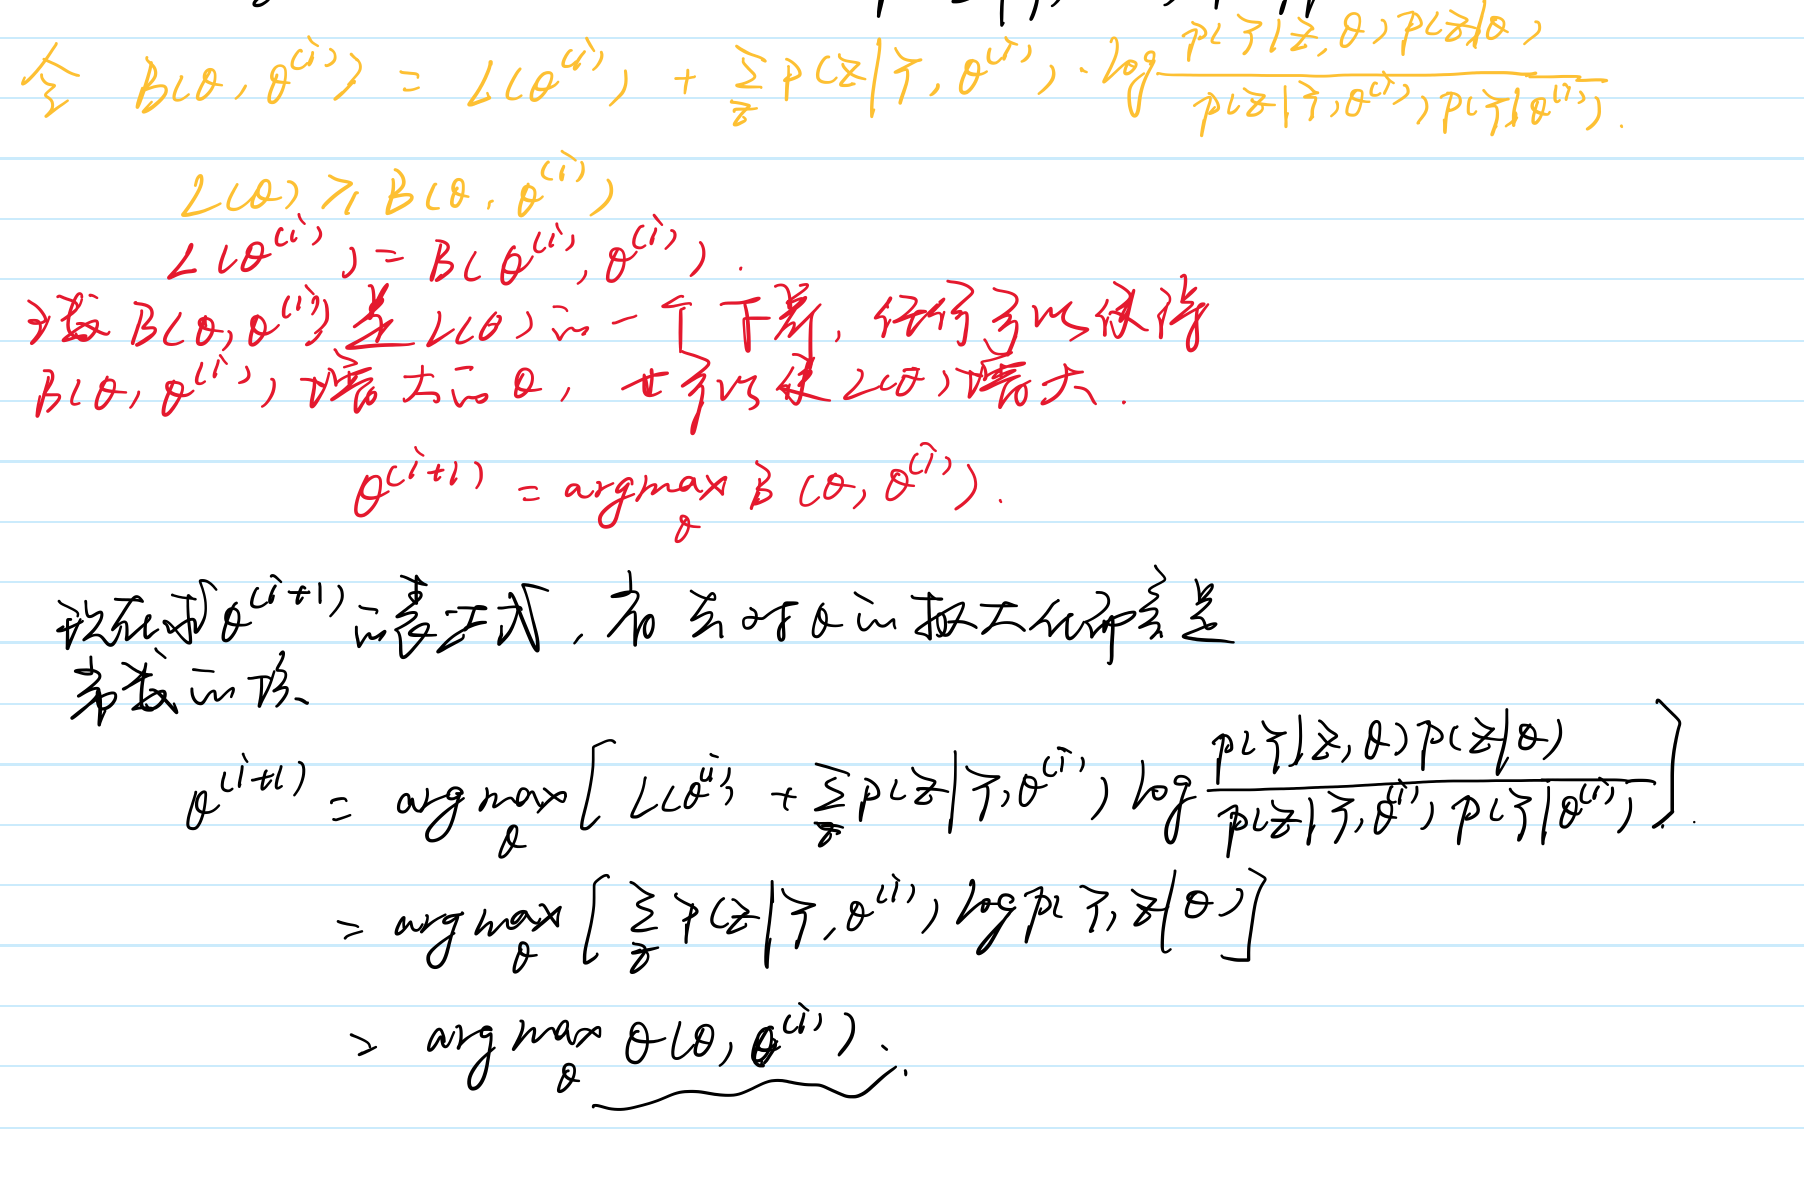 令 B(θ, θ^(i)) = L(θ^(i)) + Σ_z P(Z|Y, θ^(i)) · log \frac{P(Y|Z, θ) P(Z|θ)}{P(Z|Y, θ^(i)) P(Y|θ^(i))}.
L(θ) ⩾ B(θ, θ^(i))
L(θ^(i)) = B(θ^(i), θ^(i)).
B(θ, θ^(i)) 是 L(θ) 的一个下界, 任何可以使得
B(θ, θ^(i)) 增大的 θ, 也可以使 L(θ) 增大.
θ^(i+1) = argmax_θ B(θ, θ^(i)).
现在求 θ^(i+1) 的表达式, 省去对 θ 的极大化而言是
常数的项、
θ^(i+1) = argmax_θ [ L(θ^(i)) + Σ_z P(Z|Y, θ^(i)) log \frac{P(Y|Z, θ) P(Z|θ)}{P(Z|Y, θ^(i)) P(Y|θ^(i))} ].
= argmax_θ [ Σ_z P(Z|Y, θ^(i)) log P(Y, Z|θ) ]
= argmax_θ Q(θ, θ^(i)).